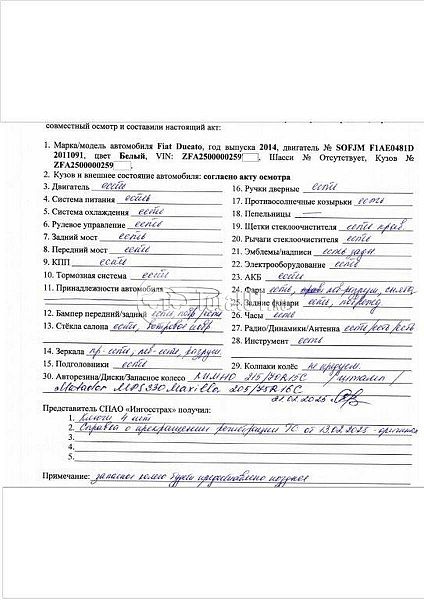 совместный осмотр и составили настоящий акт:
1. Марка/модель автомобиля Fiat Ducato, год выпуска 2014, двигатель № SOFJM F1AE0481D
2011091, цвет Белый, VIN: ZFA2500000259 , Шасси № Отсутствует, Кузов №
ZFA2500000259 .
2. Кузов и внешнее состояние автомобиля: согласно акту осмотра
3. Двигатель есть
4. Система питания есть
5. Система охлаждения есть
6. Рулевое управление есть
7. Задний мост есть
8. Передний мост есть
9. КПП есть
10. Тормозная система есть
11. Принадлежности автомобиля
12. Бампер передний/задний есть
13. Стёкла салона есть,
14. Зеркала пр-есть, лев-есть, разруш.
15. Подголовники есть
16. Ручки дверные есть
17. Противосолнечные козырьки есть
18. Пепельницы —
19. Щетки стеклоочистителя есть прав
20. Рычаги стеклоочистителя есть
21. Эмблемы/надписи есть задн
22. Электрооборудование есть
23. АКБ есть
24. Фары есть,
25. Задние фонари есть, поврежд
26. Часы есть
27. Радио/Динамики/Антенна есть/есть/есть
28. Инструмент есть
29. Колпаки колёс не предусм.
30. Авторезина/Диски/Запасное колесо 215/70R15C /штамп/
Matador MPS330 Maxilla 205/75R16C
21.02.2025
Представитель СПАО «Ингосстрах» получил:
1. Ключи 4 шт
2. Справка о прекращении регистрации ТС от 13.02.2025 - оригинал
3.
4.
5.
Примечание: запасное колесо будет предоставлено позднее